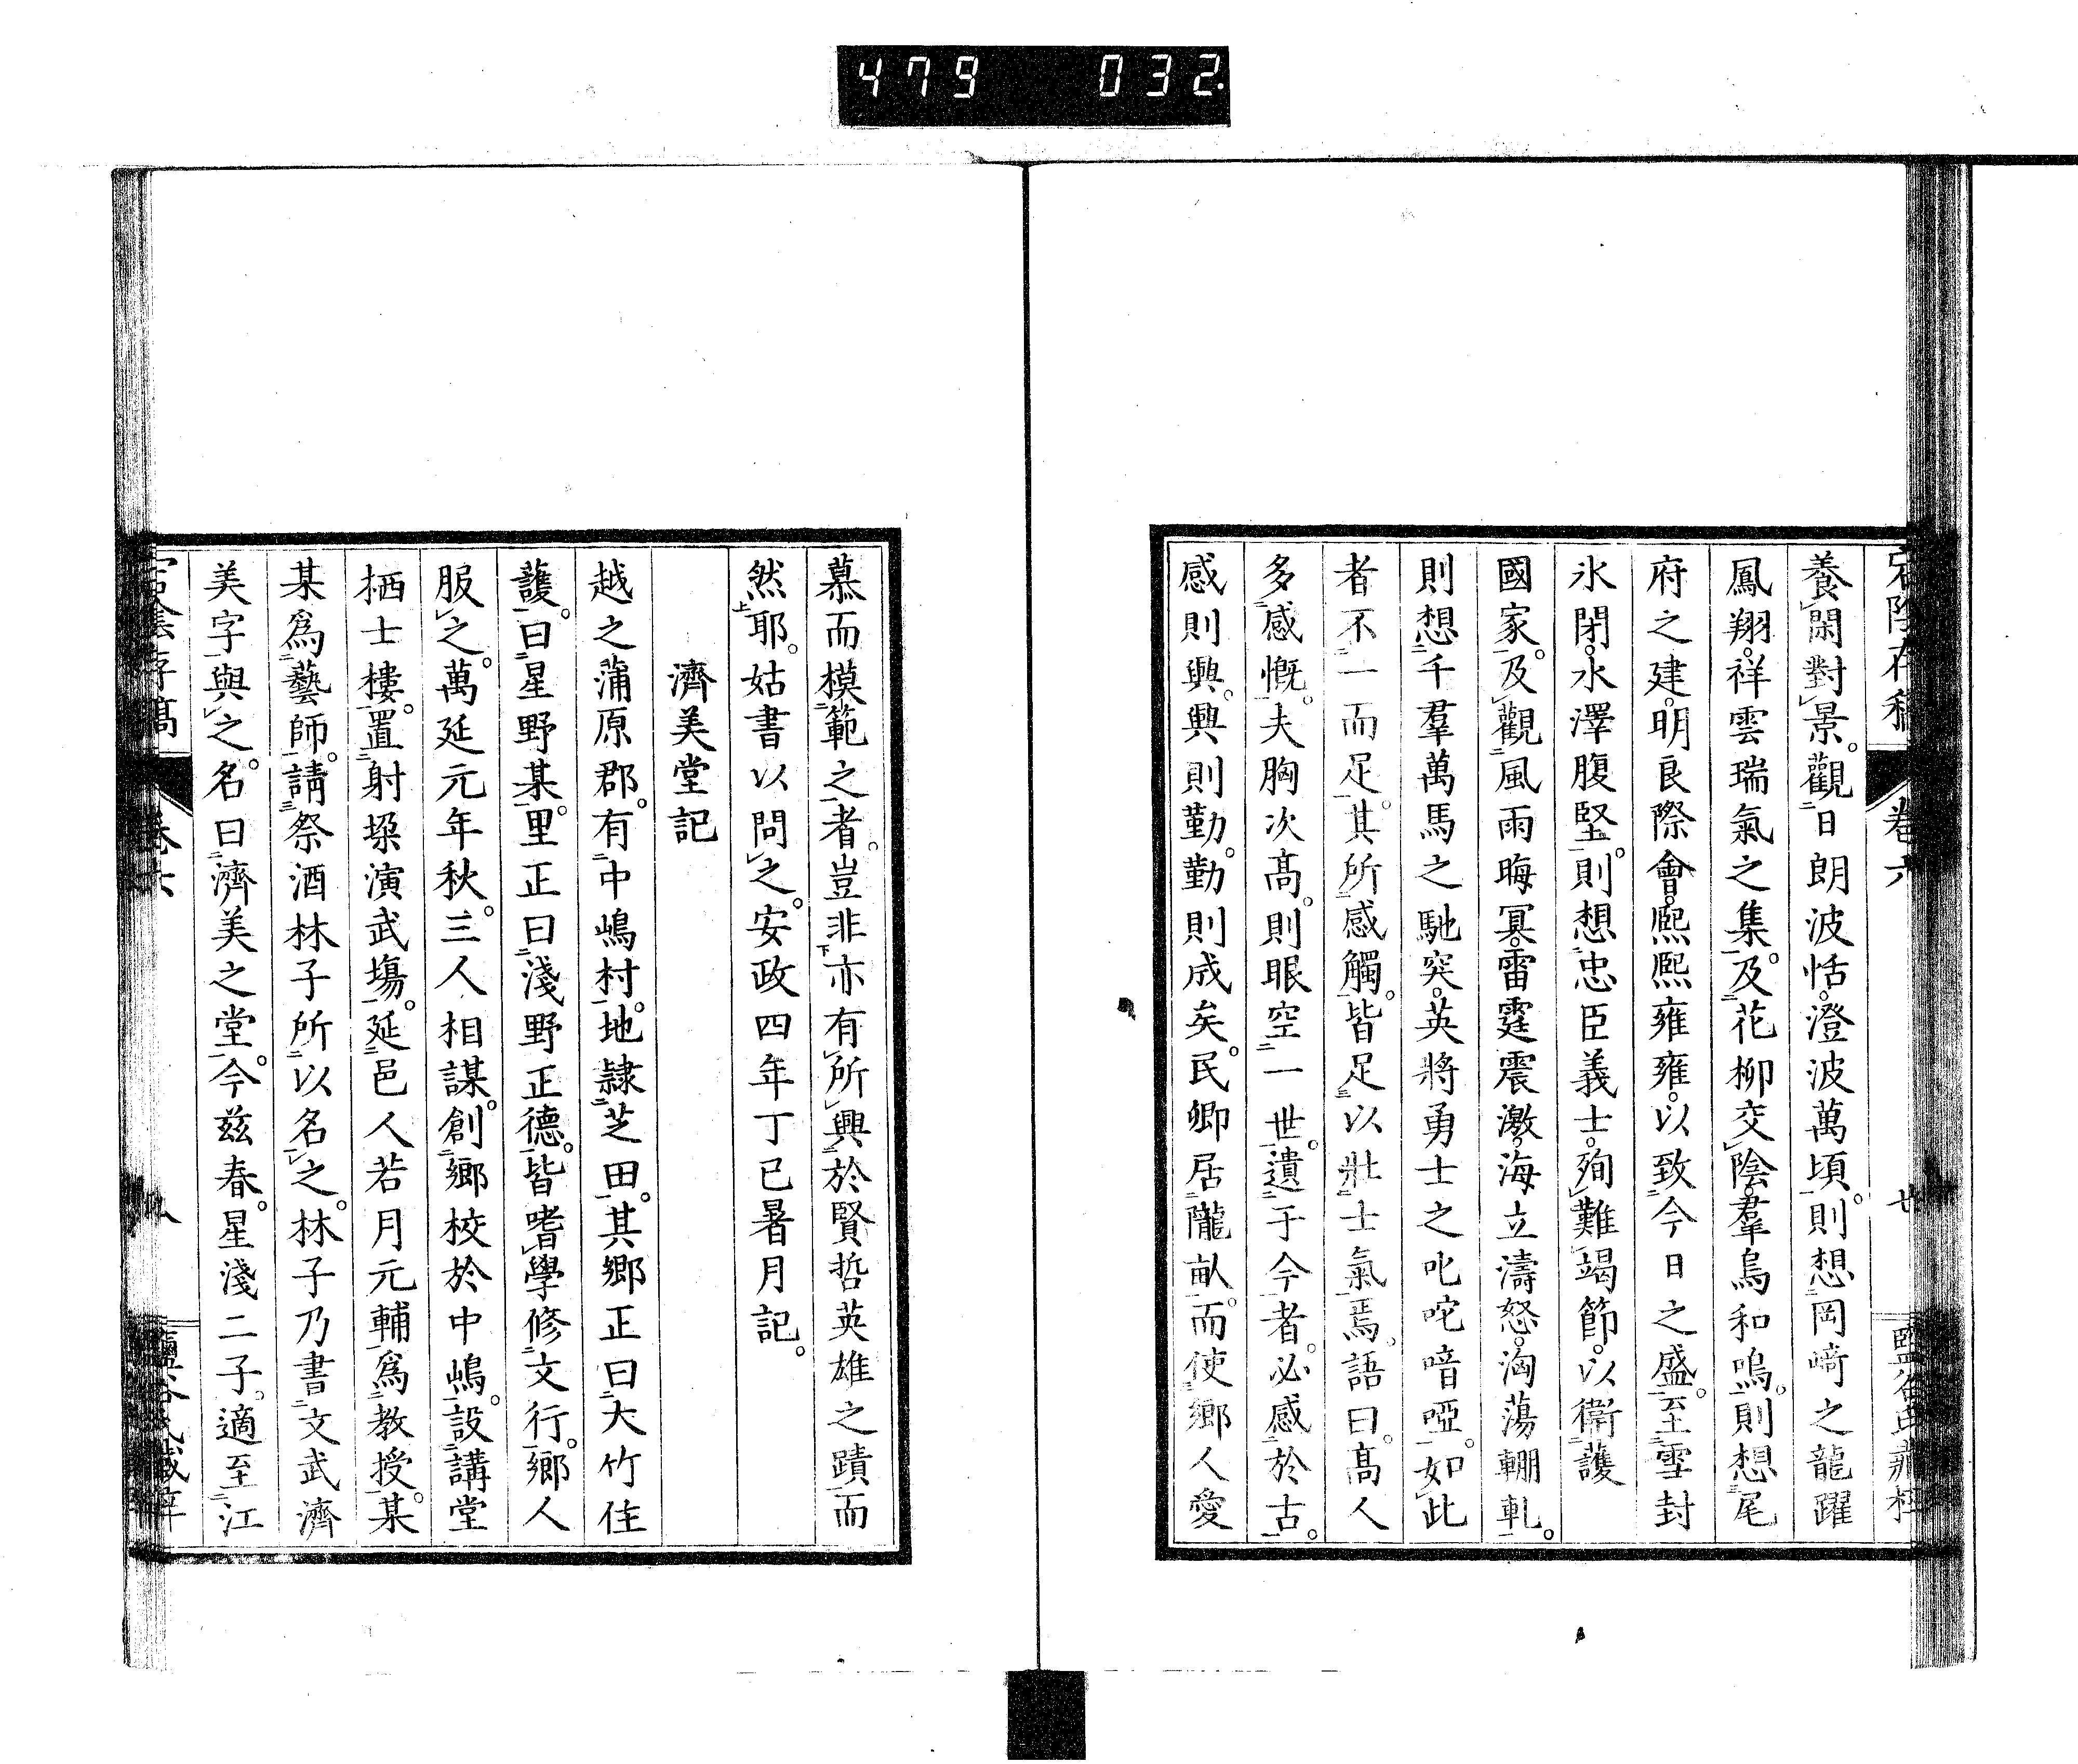 479 032
宕陰存稿 卷六
養閑對景。觀日朗波恬。澄波萬頃。則想岡﨑之龍躍
鳳翔。祥雲瑞氣之集。及花柳交陰。羣鳥和鳴。則想尾
府之建。明良際會。熈熈雍雍。以致今日之盛。至雪封
氷閉。水澤腹堅。則想忠臣義士。殉難竭節。以衛護
國家。及觀風雨晦冥。雷霆震激。海立濤怒。洶蕩輣軋。
則想千羣萬馬之馳突。英將勇士之叱咤喑啞。如此
者不一而足。其所感觸。皆足以壯士氣焉。語曰。髙人
多感慨。夫胸次髙。則眼空一世。遺于今者。必感於古。
感則興。興則勤。勤則成矣。民卿居隴畝。而使鄉人愛
慕而模範之者。豈非亦有所興於賢哲英雄之蹟而
然耶。姑書以問之。安政四年丁巳暑月記。
濟美堂記
越之蒲原郡。有中嶋村。地隷芝田。其鄉正曰大竹佳
護。曰星野某。里正曰淺野正德。皆嗜學修文行。鄉人
服之。萬延元年秋。三人相謀。創鄉校於中嶋。設講堂
栖士樓。置射垜演武塲。延邑人若月元輔爲教授。某
某爲藝師。請祭酒林子所以名之。林子乃書文武濟
美字與之。名曰濟美之堂。今茲春。星淺二子。適至江
宕陰存稿 卷六